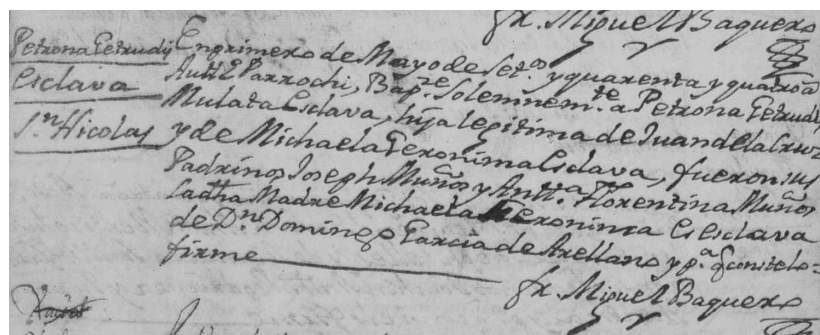 fr. Miguel Baquero
Petrona Getrudis
Esclava
Sn. Nicolas
En primero de Mayo de Seto. y quarenta y quatro a
Autte Parrochi, Bapze. Solemnemte. a Petrona Getrudis
Mulata Esclava, hija legitima de Juan de la Cruz
y de Michaela Geronima Esclava, fueron sus
Padrinos Joseph Muños y Antta. Florentina Muños
la dha Madre Michaela Geronima es Esclava
de Dn. Domingo Garcia de Arellano y pa. q conste lo=
firme
fr. Miguel Baquero